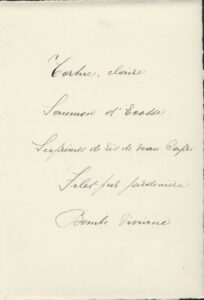 Tortue, claire
Saumon d'Ecosse
Suprêmes de ris de veau Capri
Filet pur jardinière
Bombe Viviane